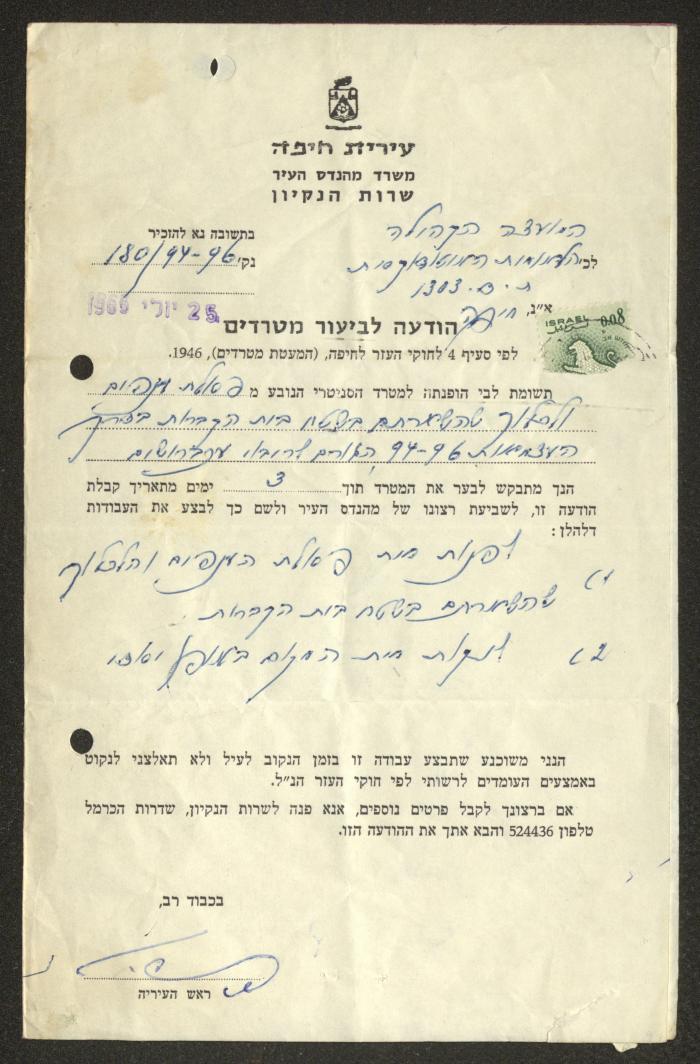 עירית חיפה
משרד מהנדס העיר
שרות הנקיון
בתשובה נא להזכיר
נקי 180/94-96
25 יולי 1965
המועצה הקהולה
לכ'
ת.ד. 1303
א"נ, חיפה
ISRAEL 0.08
הודעה לביעור מטרדים
לפי סעיף 4 לחוקי העזר לחיפה, (המעטת מטרדים), 1946.
תשומת לבי הופנתה למטרד הסניטרי הנובע מ פסולת ענפים
ולכלוך שהשארתם בשטח בית הקברות בדרך
העצמאות 94-96 הגורם לריבוי עכברושים
הנך מתבקש לבער את המטרד תוך 3 ימים מתאריך קבלת
הודעה זו, לשביעת רצונו של מהנדס העיר ולשם כך לבצע את העבודות
דלהלן:
1) לפנות את פסולת הענפים והלכלוך
שהשארתם בשטח בית הקברות.
2) לנקות את המקום באופן יסודי
הנני משוכנע שתבצע עבודה זו בזמן הנקוב לעיל ולא תאלצני לנקוט
באמצעים העומדים לרשותי לפי חוקי העזר הנ"ל.
אם ברצונך לקבל פרטים נוספים, אנא פנה לשרות הנקיון, שדרות הכרמל
טלפון 524436 והבא אתך את ההודעה הזו.
בכבוד רב,
ראש העיריה